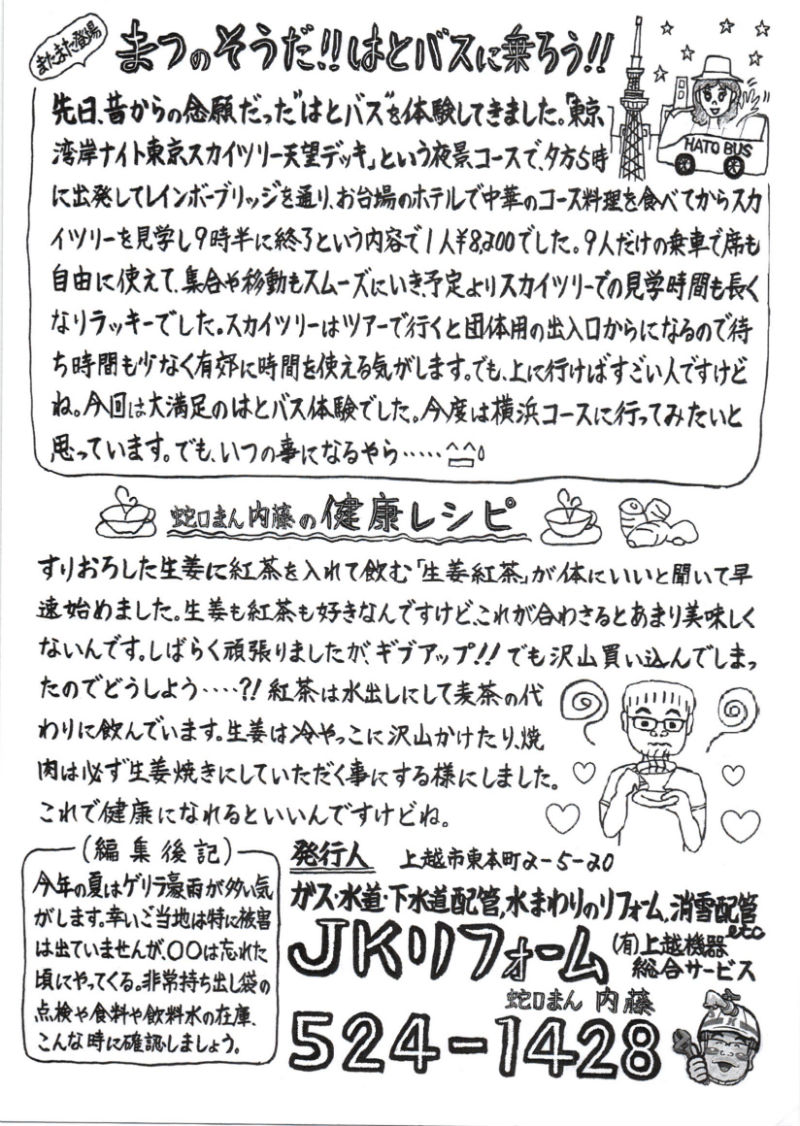 またまた登場
まつのそうだ!!はとバスに乗ろう!!
HATO BUS
先日、昔からの念願だった"はとバス"を体験してきました。「東京
湾岸ナイト東京スカイツリー天望デッキ」という夜景コースで、夕方5時
に出発してレインボーブリッジを通り、お台場のホテルで中華のコース料理を食べてからスカ
イツリーを見学し9時半に終了という内容で1人¥8,200でした。9人だけの乗車で席も
自由に使えて、集合や移動もスムーズにいき、予定よりスカイツリーでの見学時間も長く
なりラッキーでした。スカイツリーはツアーで行くと団体用の出入口からになるので待
ち時間も少なく有効に時間を使える気がします。でも、上に行けばすごい人ですけど
ね。今回は大満足のはとバス体験でした。今度は横浜コースに行ってみたいと
思っています。でも、いつの事になるやら……^^
蛇口まん内藤の健康レシピ
すりおろした生姜に紅茶を入れて飲む「生姜紅茶」が体にいいと聞いて早
速始めました。生姜も紅茶も好きなんですけど、これが合わさるとあまり美味しく
ないんです。しばらく頑張りましたが、ギブアップ!!でも沢山買い込んでしまっ
たのでどうしよう……?!紅茶は水出しにして麦茶の代
わりに飲んでいます。生姜は冷やっこに沢山かけたり、焼
肉は必ず生姜焼きにしていただく事にする様にしました。
これで健康になれるといいんですけどね。
(編集後記)
今年の夏はゲリラ豪雨が多い気
がします。幸いご当地は特に被害
は出ていませんが、〇〇は忘れた
頃にやってくる。非常持ち出し袋の
点検や食料や飲料水の在庫、
こんな時に確認しましょう。
発行人 上越市東本町2-5-20
ガス・水道・下水道配管,水まわりのリフォーム,消雪配管
etc
JKリフォーム
(有)上越機器
総合サービス
蛇口まん 内藤
524-1428